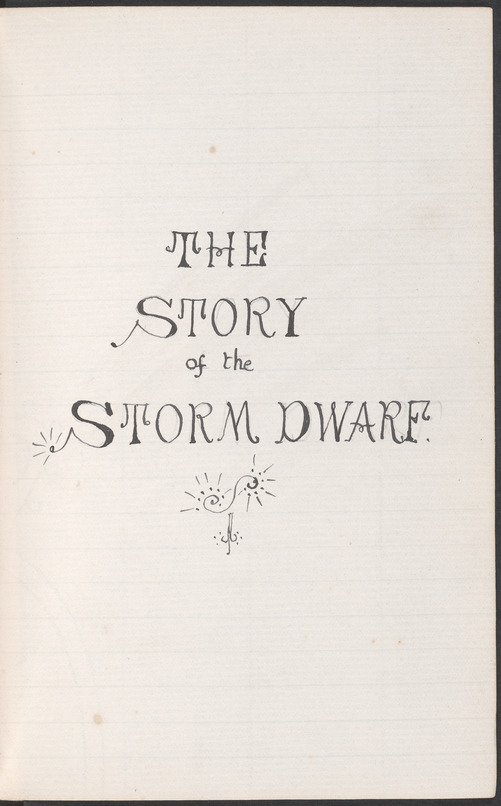 THE
STORY
of the
STORM DWARF.